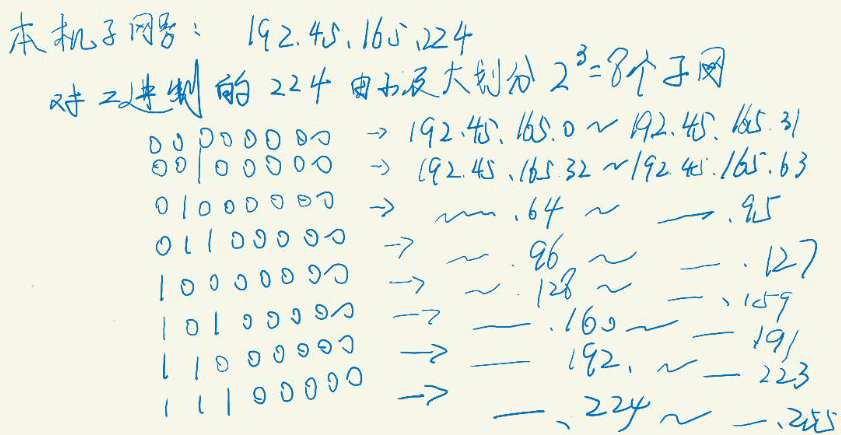 本机子网号: 192.45.165.224
对二进制的 224 由小及大划分 2³=8个子网
00000000 → 192.45.165.0 ~ 192.45.165.31
00100000 → 192.45.165.32 ~ 192.45.165.63
01000000 → ~ .64 ~ — .95
01100000 → ~ .96 ~ — .127
10000000 → ~ .128 ~ — .159
10100000 → — .160 ~ — 191
11000000 → — 192. ~ — 223
11100000 → — .224 ~ — .255